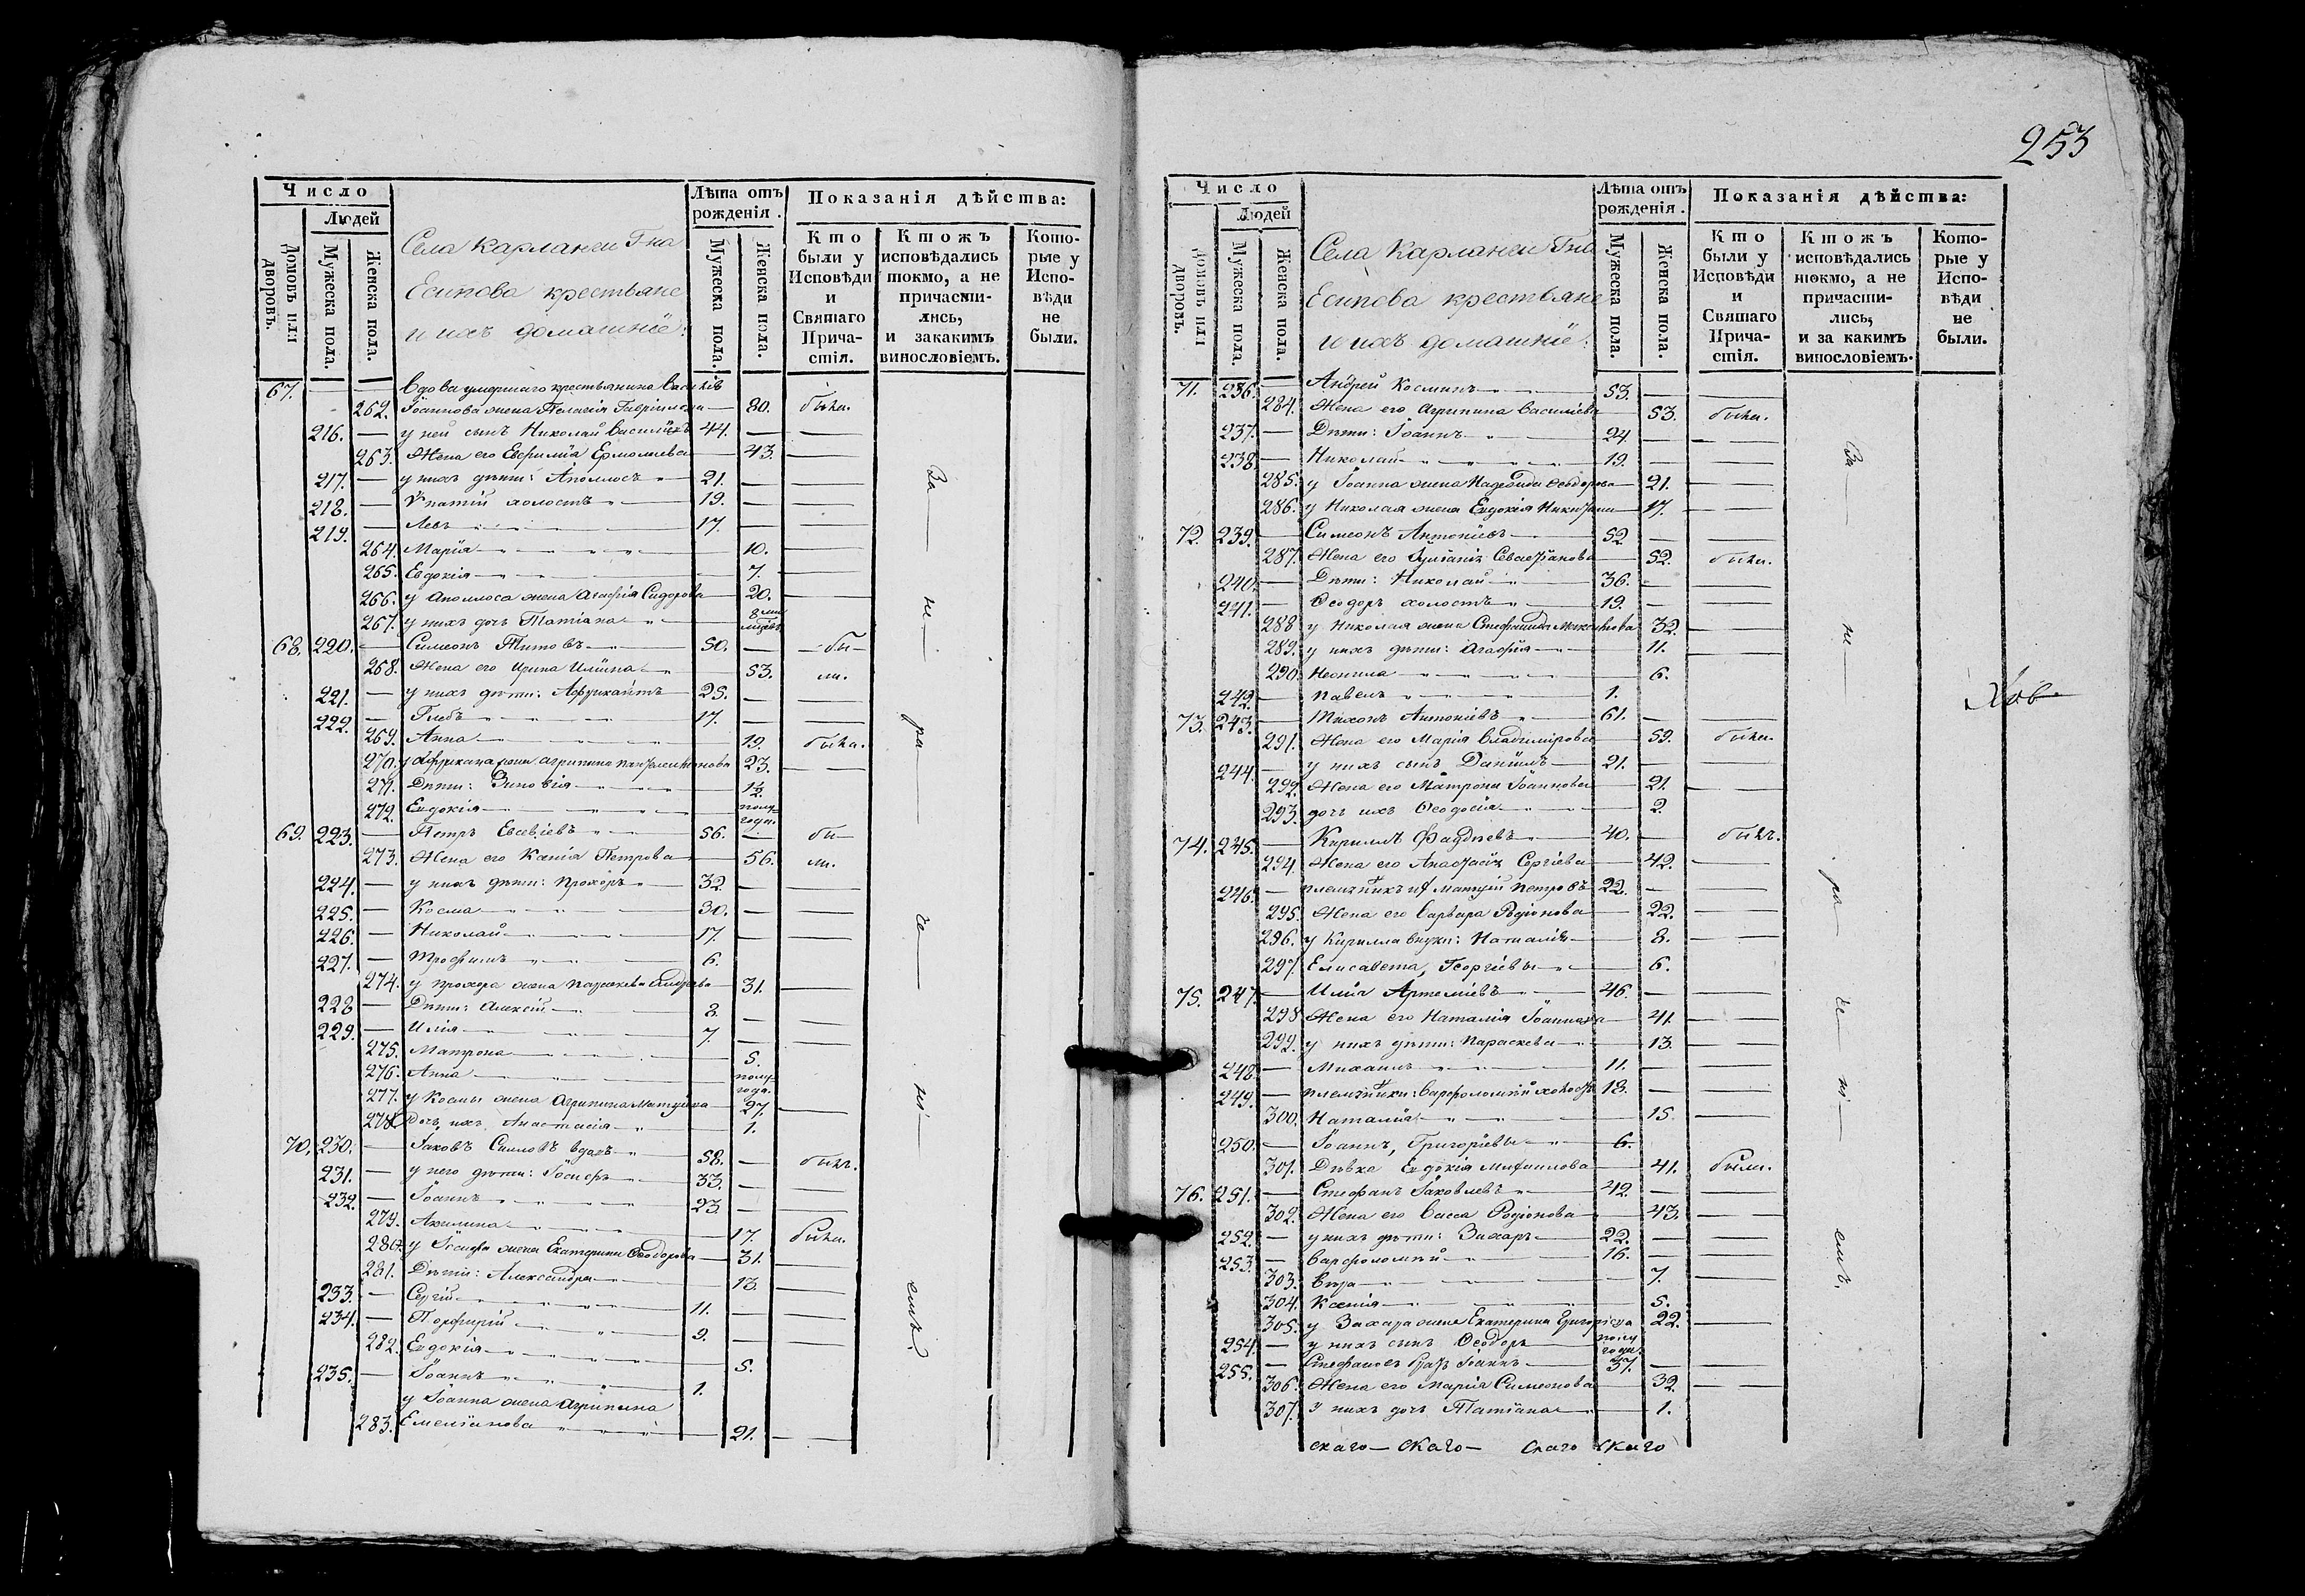 253
Число
Людей
Домовъ или дворовъ.
Мужеска пола.
Женска пола.
Села Карланги Г-на
Есипова крестьяне
и ихъ домашніе:
Лѣта отъ рожденія.
Мужеска пола.
Женска пола.
Показанія дѣйства:
Кто были у Исповѣди и Святаго Причастія.
Ктожъ исповѣдались токмо, а не причастились, и закакимъ винословіемъ.
Которые у Исповѣди не были.
67. Вдова умершаго крестьянина Василія
262. Іоаннова жена Пелагія Гавріилова 80. была.
216. у ней сынъ Николай Васильевъ 44.
263. Жена его Евфимія Ермолаева 43.
217. у нихъ дѣти: Аполлосъ 21.
218. Упатій холостъ 19.
219. Левъ 17.
264. Марія 10.
265. Евдокія 7.
266. у Аполлоса жена Агафія Сидорова 20.
267. у нихъ дочь Татіана 8 ми мѣсяцъ
68. 220. Симеонъ Титовъ 50. бы-
268. Жена его Ирина Иліина 53. ли.
221. у нихъ дѣти: Африканъ 25.
222. Глебъ 17.
269. Анна 19. была.
270. у Африкана жена Агрипина Пантелеимонова 23.
271. Дѣти: Зиновія 12.
272. Евдокія полу-года.
69. 223. Петръ Евсевіевъ 56. бы-
273. Жена его Ксенія Петрова 56. ли.
224. у нихъ дѣти: Прохоръ 32.
225. Косма 30.
226. Николай 17.
227. Трофимъ 6.
274. у Прохора жена Параскева Андреева 31.
228 Дѣти: Алексій 8.
229. Илія 7.
275. Матрона 5.
276. Анна полу-года.
277. у Космы жена Агрипина Матѳеева 27.
278 Дочь ихъ Анастасія 1.
70. 230. Іаковъ Симовъ вдовъ 58. былъ.
231. у него дѣти: Іосифъ 33.
232. Іоаннъ 23
279. Акилина 17. была.
280. у Іосифа жена Екатерина Ѳеодорова 31.
281. Дѣти: Александра 13.
233. Сергій 11.
234. Порфирій 9.
282. Евдокія 5.
235. Іоаннъ 1.
у Іоанна жена Агрипина
283. Емеліанова 21.
За не ра че ні емъ.
Число
Людей
Домовъ или дворовъ.
Мужеска пола.
Женска пола.
Села Карланги Г-на
Есипова крестьяне
и ихъ домашніе:
Лѣта отъ рожденія.
Мужеска пола.
Женска пола.
Показанія дѣйства:
Кто были у Исповѣди и Святаго Причастія.
Ктожъ исповѣдались токмо, а не причастились, и за какимъ винословіемъ.
Которые у Исповѣди не были.
71. 236. Андрей Косминъ 53.
284. Жена его Агрипина Василіева 53. была.
237. Дѣти: Іоаннъ 24.
238 Николай 19.
285. у Іоанна жена Надежда Ѳеодорова 21.
286. у Николая жена Евдокія Никитина 17.
72. 239. Симеонъ Антоніевъ 52.
287. Жена его Іуліанія Севастіанова 52. была.
240. Дѣти: Николай 36.
241. Ѳеодоръ холостъ 19.
288 у Николая жена Стефанида Максимова 32.
289. у нихъ дѣти: Агафія 11.
290. Неонила 6.
242. Павелъ 1.
73. 243. Тихонъ Антоніевъ 61.
291. Жена его Марія Владимірова 59. была.
244. у нихъ сынъ Даніилъ 21.
292. Жена его Матрона Іоаннова 21.
293. дочь ихъ Ѳеодосія 2.
74. 245. Кириллъ Фаддѣевъ 40. былъ.
294. Жена его Анастасія Сергіева 42.
246. племянникъ их Матѳій Петровъ 22.
295. Жена его Варвара Родіонова 22.
296. у Кирилла внуки: Наталія 8.
297. Елисавета, Георгіевы 6.
75. 247. Илія Артеміевъ 46.
298 Жена его Наталія Іоаннова 41.
299. у нихъ дѣти: Параскева 13.
248. Михаилъ 11.
249. племянники: Варфоломей холостъ 18.
300. Наталія 15.
250. Іоаннъ, Григоріевы 6.
301. Дѣвка Евдокія Михаилова 41. были.
76. 251. Стефанъ Іаковлевъ 42.
302. Жена его Васса Родіонова 43.
252. у нихъ дѣти: Захаръ 22.
253. Варфоломей 16.
303. Вѣра 7.
304. Ксенія 5.
305. у Захара жена Екатерина Григоріева 22.
254. у нихъ сынъ Ѳеодоръ полу года.
255. Стефановъ братъ Іоаннъ 37.
306. Жена его Марія Симеонова 32.
307. у нихъ дочь Татіана 1.
За не ра че ні емъ.
скаго — скаго — скаго скаго